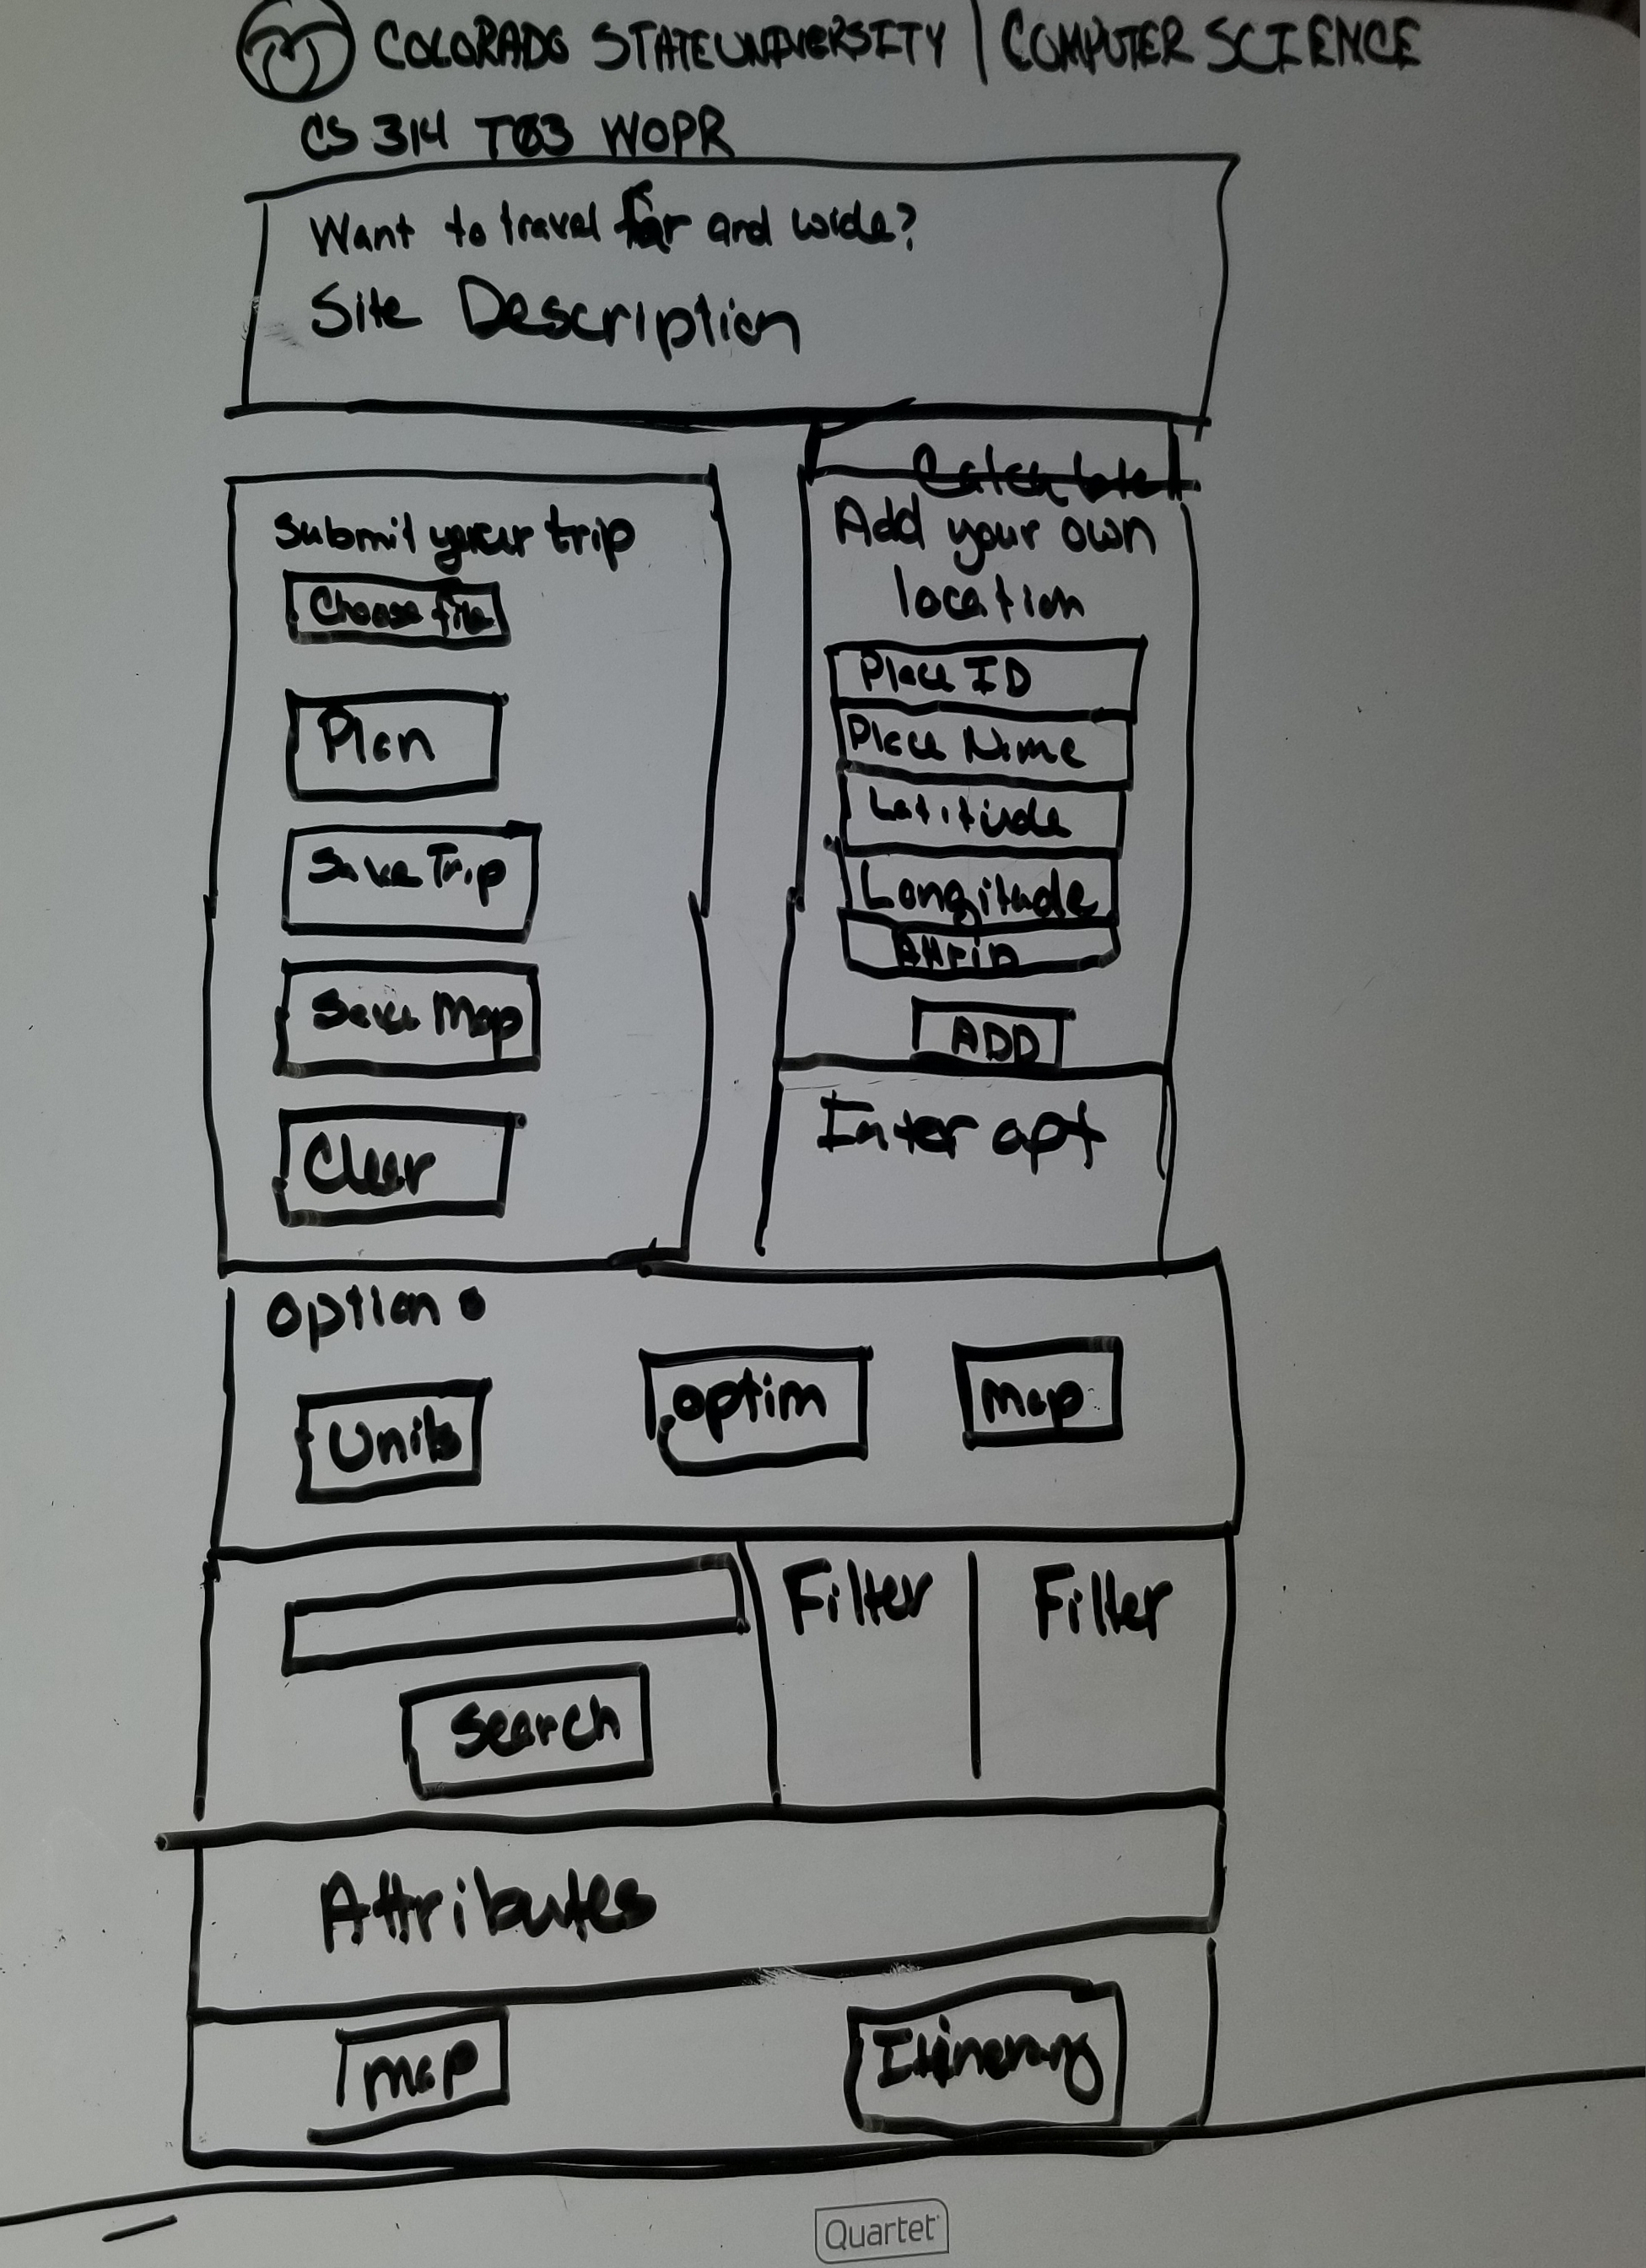 COLORADO STATE UNIVERSITY | COMPUTER SCIENCE
CS 314 T03 WOPR
Want to travel far and wide?
Site Description
Submit your trip
Choose file
Plan
Save Trip
Save Map
Clear
Add your own
location
Place ID
Place Name
Latitude
Longitude
Attrib
ADD
Inter opt
Options
Units
Optim
Map
Search
Filter
Filter
Attributes
Map
Itinerary
Quartet